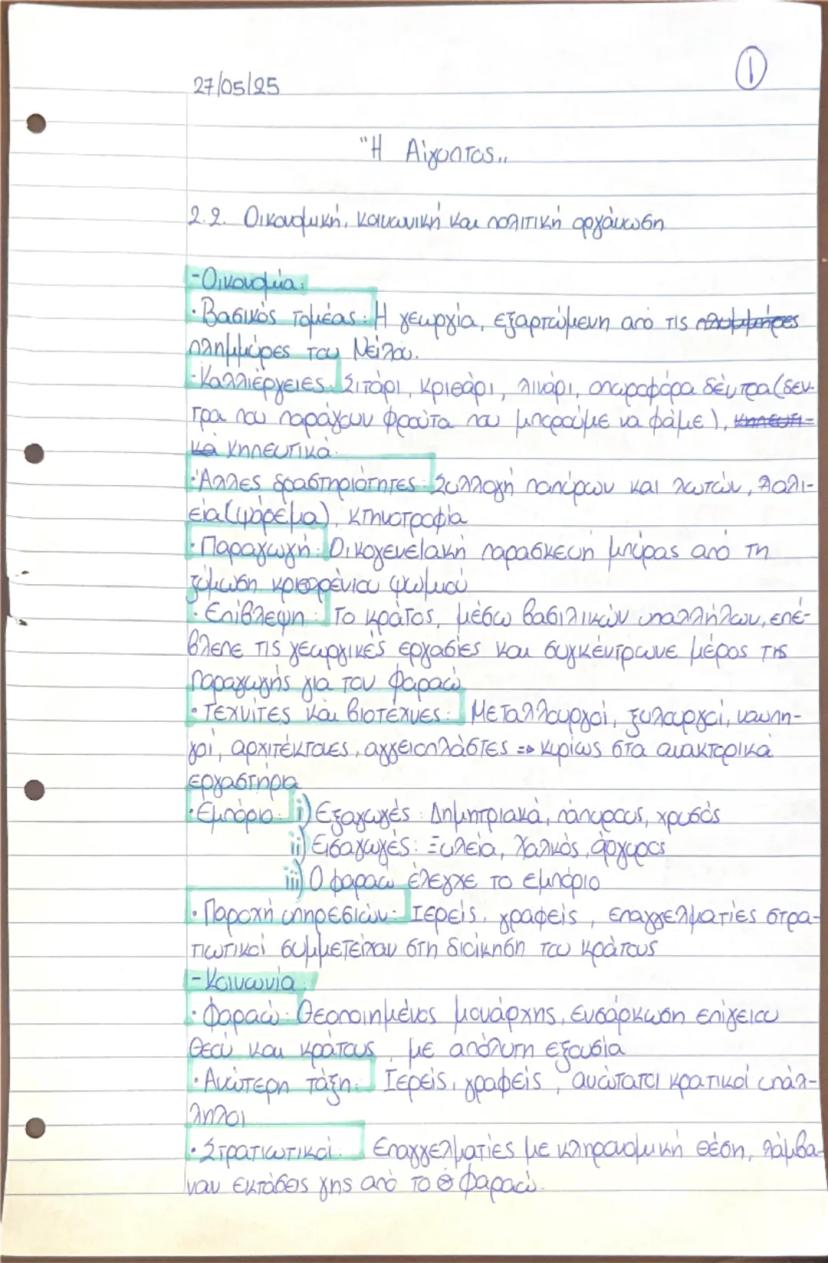 1
27/05/25
"Η Αίγυπτος,,
2.2. Οικονομική, κοινωνική και πολιτική οργάνωση
-Οικονομία:
·Βασικός τομέας: Η γεωργία, εξαρτώμενη από τις πλημμήρες
πλημμύρες του Νείλου.
·Καλλιέργειες: Σιτάρι, κριθάρι, λινάρι, οπωροφόρα δέντρα(δεν-
τρα που παράγουν φρούτα που μπορούμε να φάμε), κηπευτι-
κά κηπευτικά.
·Άλλες δραστηριότητες: Συλλογή παπύρων και λωτών, αλι-
εία(ψάρεμα), κτηνοτροφία
·Παραγωγή: Οικογενειακή παρασκευή μπύρας από τη
ζύμωση κρισαρένιου ψωμιού
·Επίβλεψη: Το κράτος, μέσω βασιλικών υπαλλήλων, επέ-
βλεπε τις γεωργικές εργασίες και συγκέντρωνε μέρος της
παραγωγής για τον φαραώ
·Τεχνίτες και βιοτέχνες: Μεταλλουργοί, ξυλουργοί, ναυπη-
γοί, αρχιτέκτονες, αγγειοπλάστες => κυρίως στα ανακτορικά
εργαστήρια
·Εμπόριο: i) Εξαγωγές: Δημητριακά, πάπυρους, χρυσός
ii) Εισαγωγές: Ξυλεία, χαλκός, άργυρος
iii) Ο φαραώ έλεγχε το εμπόριο
·Παροχή υπηρεσιών: Ιερείς, γραφείς, επαγγελματίες στρα-
τιωτικοί συμμετείχαν στη διοίκηση του κράτους
-Κοινωνία:
·Φαραώ: Θεοποιημένος μονάρχης, ενσάρκωση επίγειου
θεού και κράτους, με απόλυτη εξουσία
·Ανώτερη τάξη: Ιερείς, γραφείς, ανώτατοι κρατικοί υπάλ-
ληλοι
·Στρατιωτικοί: Επαγγελματίες με κληρονομική θέση, λάμβα-
ναν εκτάσεις γης από το φαραώ.